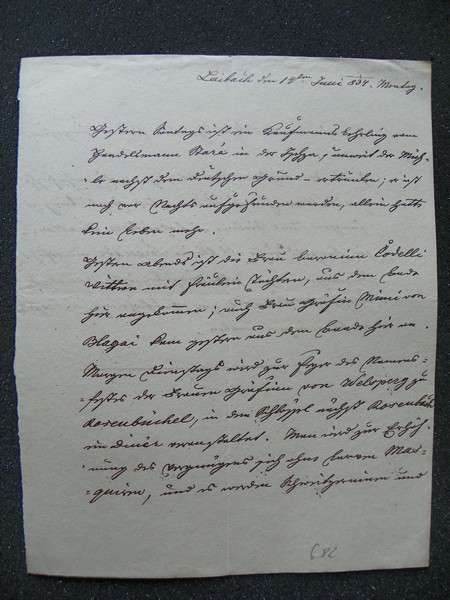 Laibach den 14ten 834. Montag.
Gestern Sontags ist ein Kaufmannslehrling vom
Handelsmann Staré in der unweit der Müh-
-le nächst dem Deutschen Grund - ertrunken; er ist
noch vor Nachts aufgefunden worden, allein hatte
kein Leben mehr.
Gestern Abends ist die Frau Baronin Codelli
Wittwe mit Fräulein Tochter, aus dem Bade
hier angekommen; auch Frau Gräfin Mimi von
Blagai kam gestern aus dem Bade hier an.
Morgen Dienstags wird zur Feyer des Namens-
-festes der Frauen Gräfinn von Welsperg zu
Rosenbüchel, in dem Schlössel nächst Rosenbüch.
ein Diner veranstaltet. Man wird zur Erhöh-
-nung des Vergnügens sich ohne Larven Mas-
-quiren, und es werden Schweitzerinen und
682